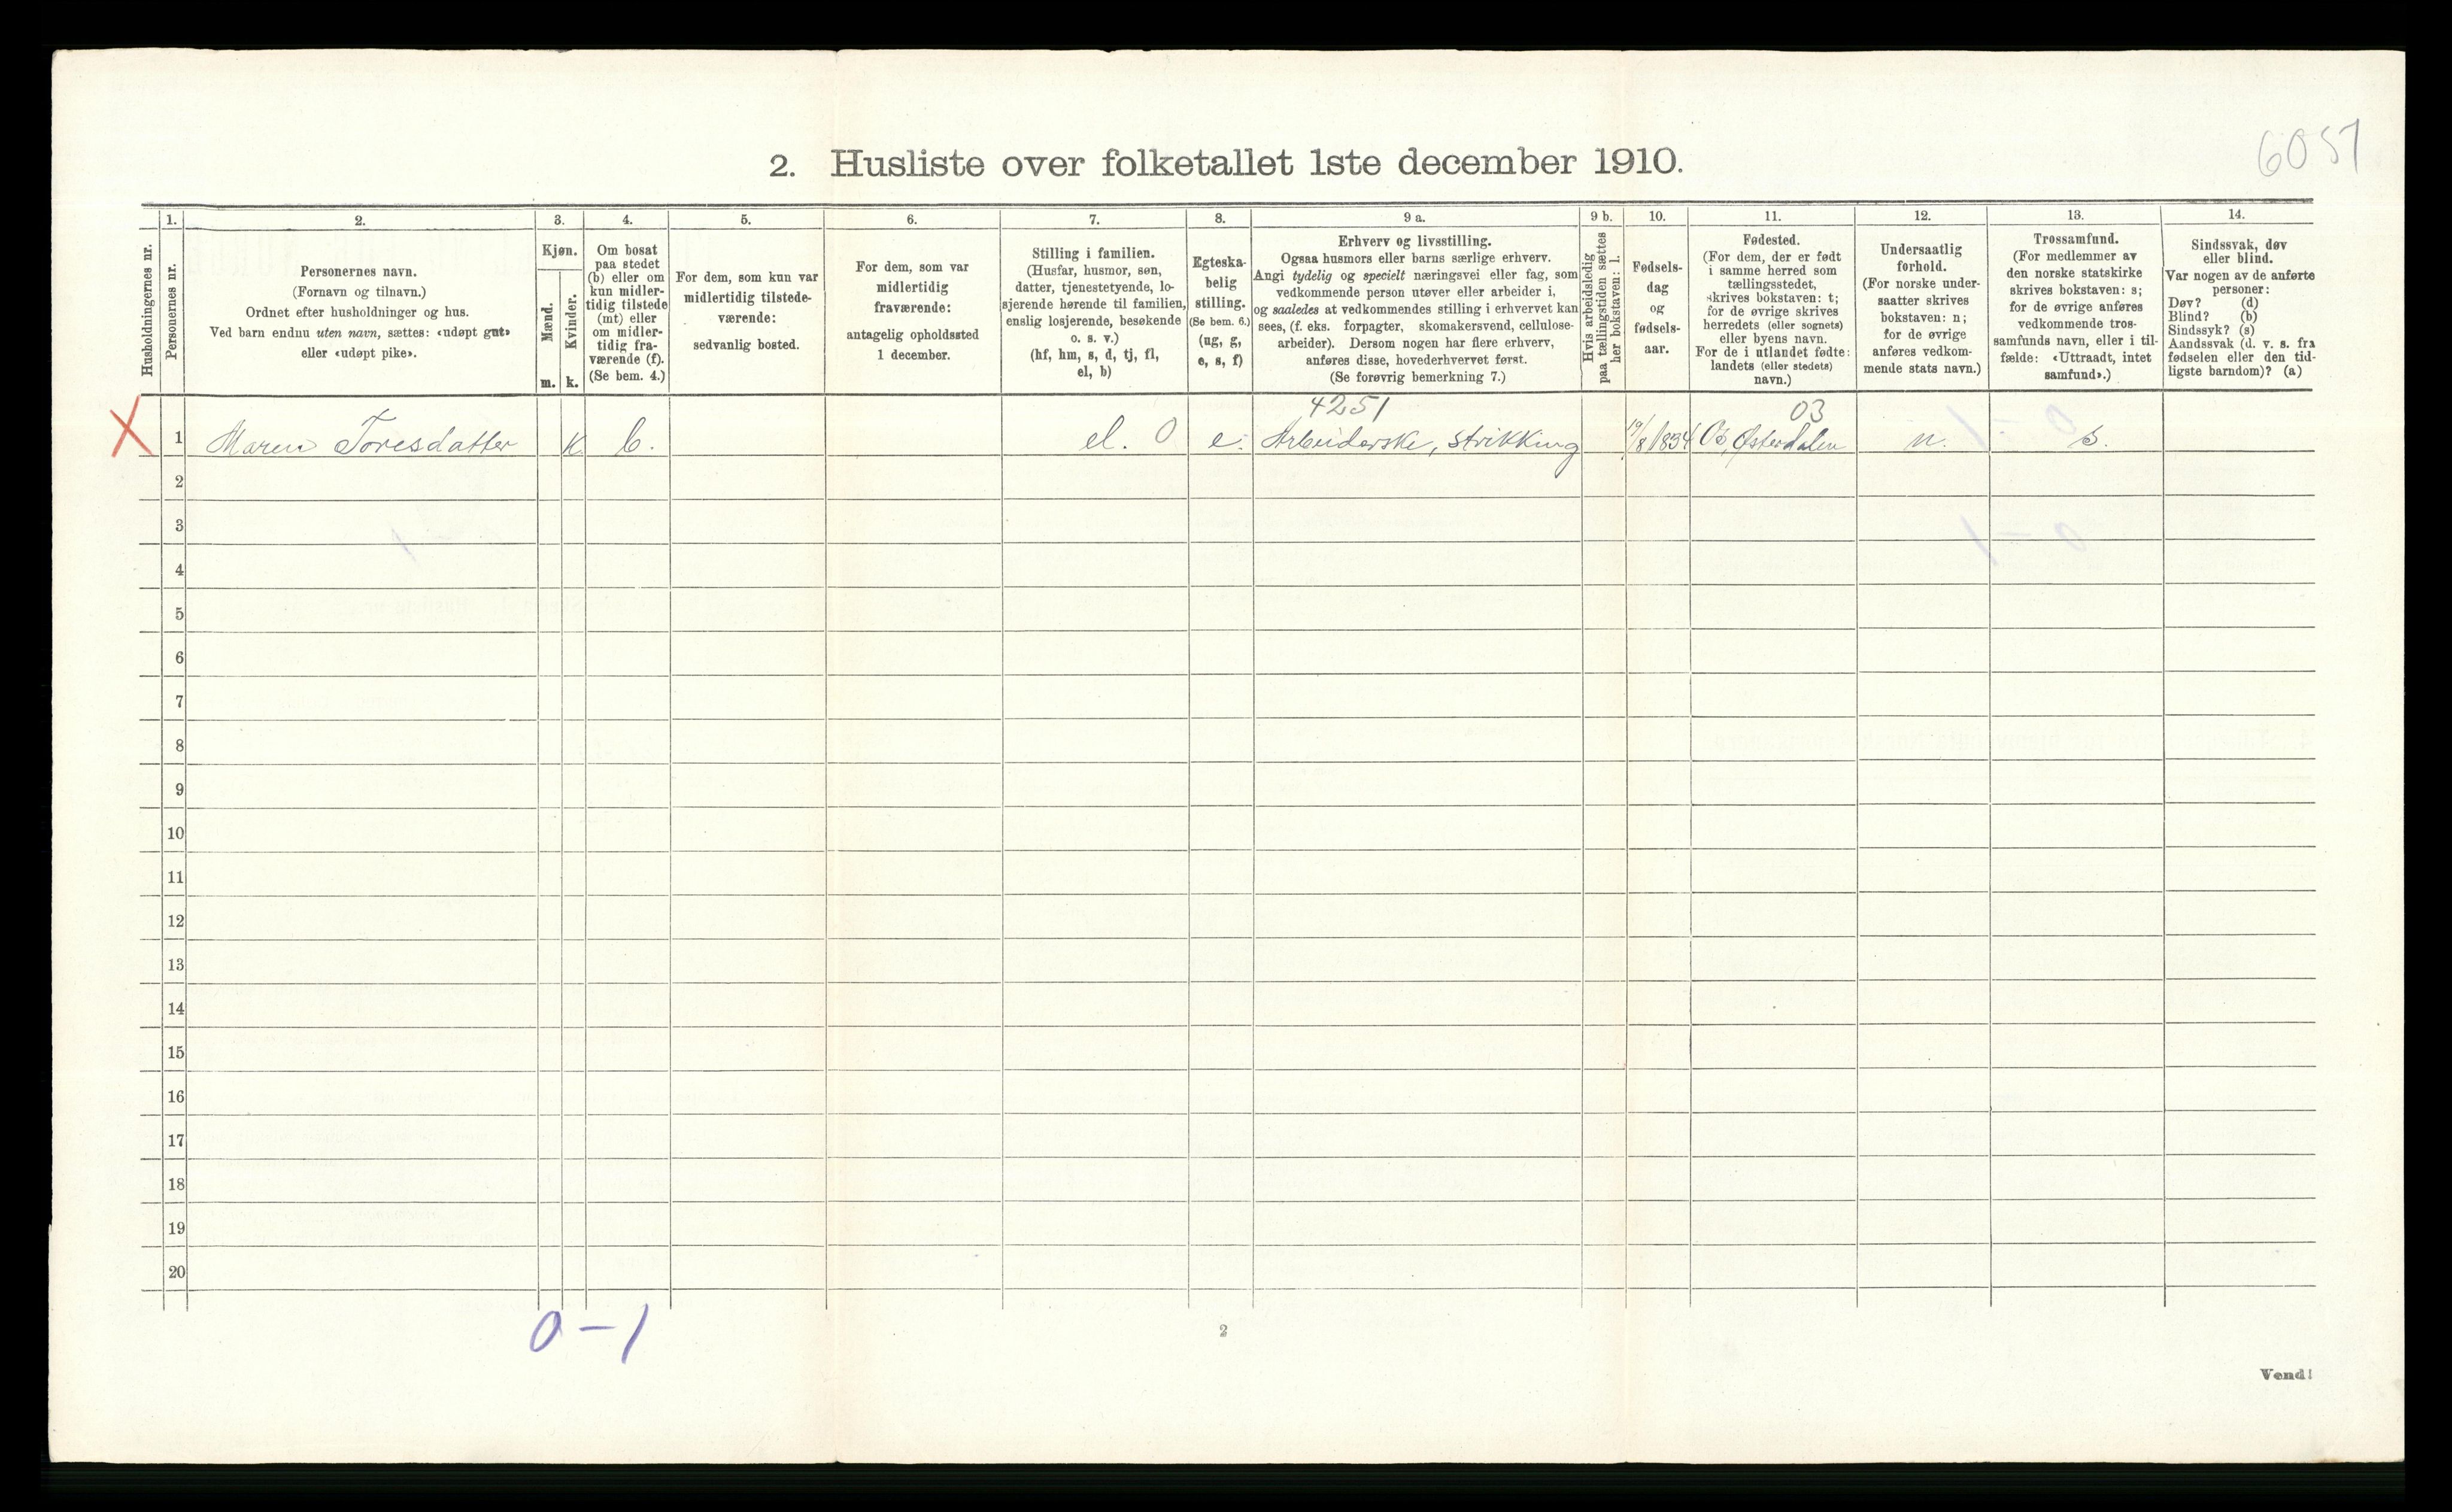 6051
2. Husliste over folketallet 1ste december 1910.
Husholdningernes nr.
1.
Personernes nr.
2.
Personernes navn.
(Fornavn og tilnavn.)
Ordnet efter husholdninger og hus.
Ved barn endnu uten navn, sættes: «udøpt gut»
eller «udøpt pike».
3.
Kjøn.
Mænd.
m.
Kvinder.
k.
4.
Om bosat
paa stedet
(b) eller om
kun midler-
tidig tilstede
(mt) eller
om midler-
tidig fra-
værende (f).
(Se bem. 4.)
5.
For dem, som kun var
midlertidig tilstede-
værende:
sedvanlig bosted.
6.
For dem, som var
midlertidig
fraværende:
antagelig opholdssted
1 december.
7.
Stilling i familien.
(Husfar, husmor, søn,
datter, tjenestetyende, lo-
sjerende hørende til familien,
enslig losjerende, besøkende
o. s. v.)
(hf, hm, s, d, tj, fl,
el, b)
8.
Egteska-
belig
stilling.
(Se bem. 6.)
(ug, g,
e, s, f)
9 a.
Erhverv og livsstilling.
Ogsaa husmors eller barns særlige erhverv.
Angi tydelig og specielt næringsvei eller fag, som
vedkommende person utøver eller arbeider i,
og saaledes at vedkommendes stilling i erhvervet kan
sees, (f. eks. forpagter, skomakersvend, cellulose-
arbeider). Dersom nogen har flere erhverv,
anføres disse, hovederhvervet først.
(Se forøvrig bemerkning 7.)
9 b.
Hvis arbeidsledig
paa tællingstiden sættes
her bokstaven: l.
10.
Fødsels-
dag
og
fødsels-
aar.
11.
Fødested.
(For dem, der er født
i samme herred som
tællingsstedet,
skrives bokstaven: t;
for de øvrige skrives
herredets (eller sognets)
eller byens navn.
For de i utlandet fødte:
landets (eller stedets)
navn.)
12.
Undersaatlig
forhold.
(For norske under-
saatter skrives
bokstaven: n;
for de øvrige
anføres vedkom-
mende stats navn.)
13.
Trossamfund.
(For medlemmer av
den norske statskirke
skrives bokstaven: s;
for de øvrige anføres
vedkommende tros-
samfunds navn, eller i til-
fælde: «Uttraadt, intet
samfund».)
14.
Sindssvak, døv
eller blind.
Var nogen av de anførte
personer:
Døv? (d)
Blind? (b)
Sindssyk? (s)
Aandssvak (d. v. s. fra
fødselen eller den tid-
ligste barndom)? (a)
4251
03
X 1 Maren Toresdatter K b. el. 0 e. Arbeiderske, strikking 19/8 1834 Os, Østerdalen n. s.
2
3
4
5
6
7
8
9
10
11
12
13
14
15
16
17
18
19
20
0-1
2
Vend!